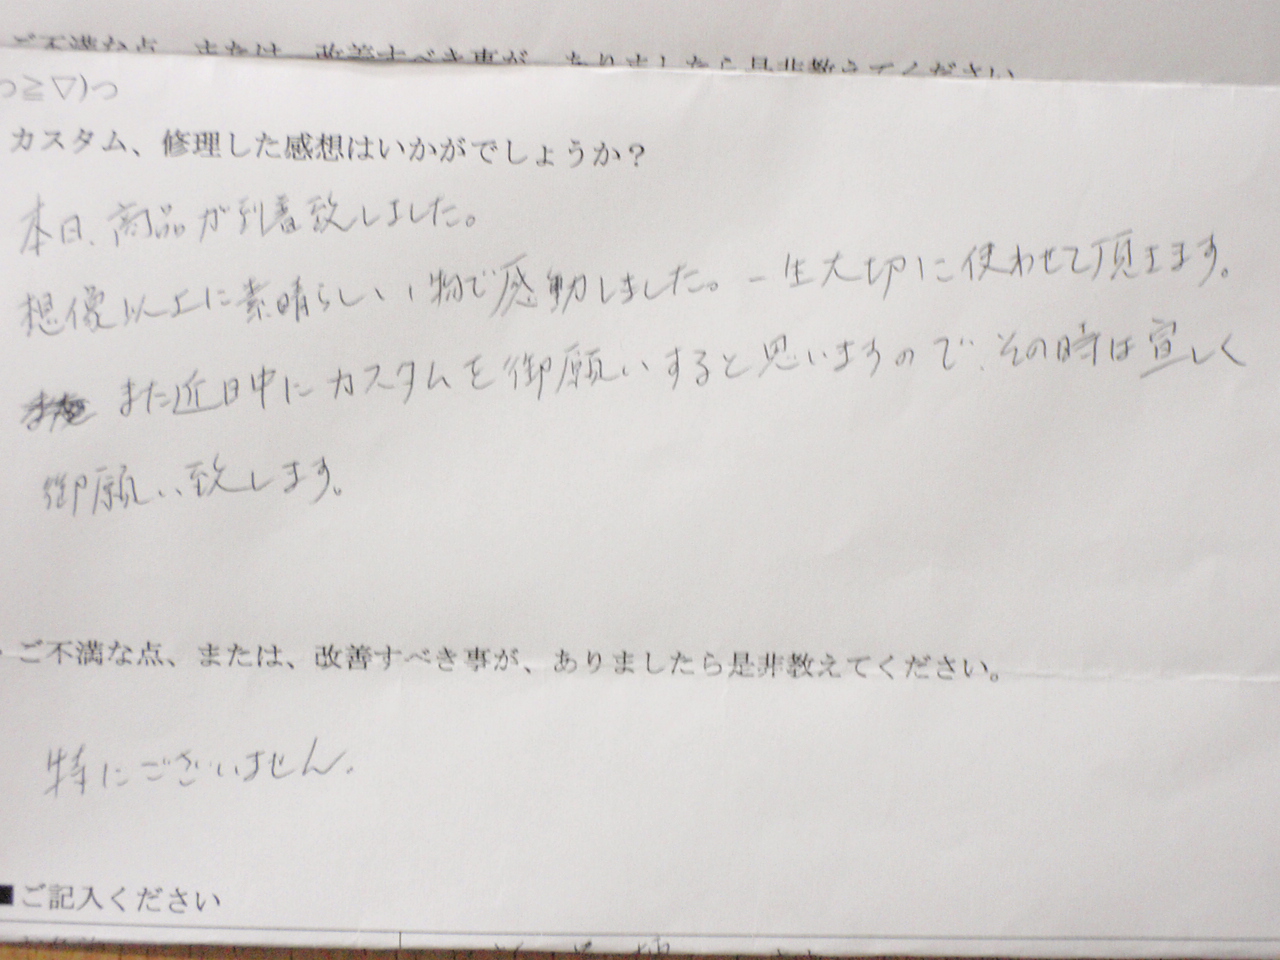 ご不満な点、または、改善すべき事が、ありましたら是非教えてください
つ≧▽)つ
カスタム、修理した感想はいかがでしょうか？
本日、商品が到着致しました。
想像以上に素晴らしい物で感動しました。一生大切に使わせて頂きます。
また近日中にカスタムを御願いすると思いますので、その時は宜しく
御願い致します。
ご不満な点、または、改善すべき事が、ありましたら是非教えてください。
特にございません.
■ご記入ください